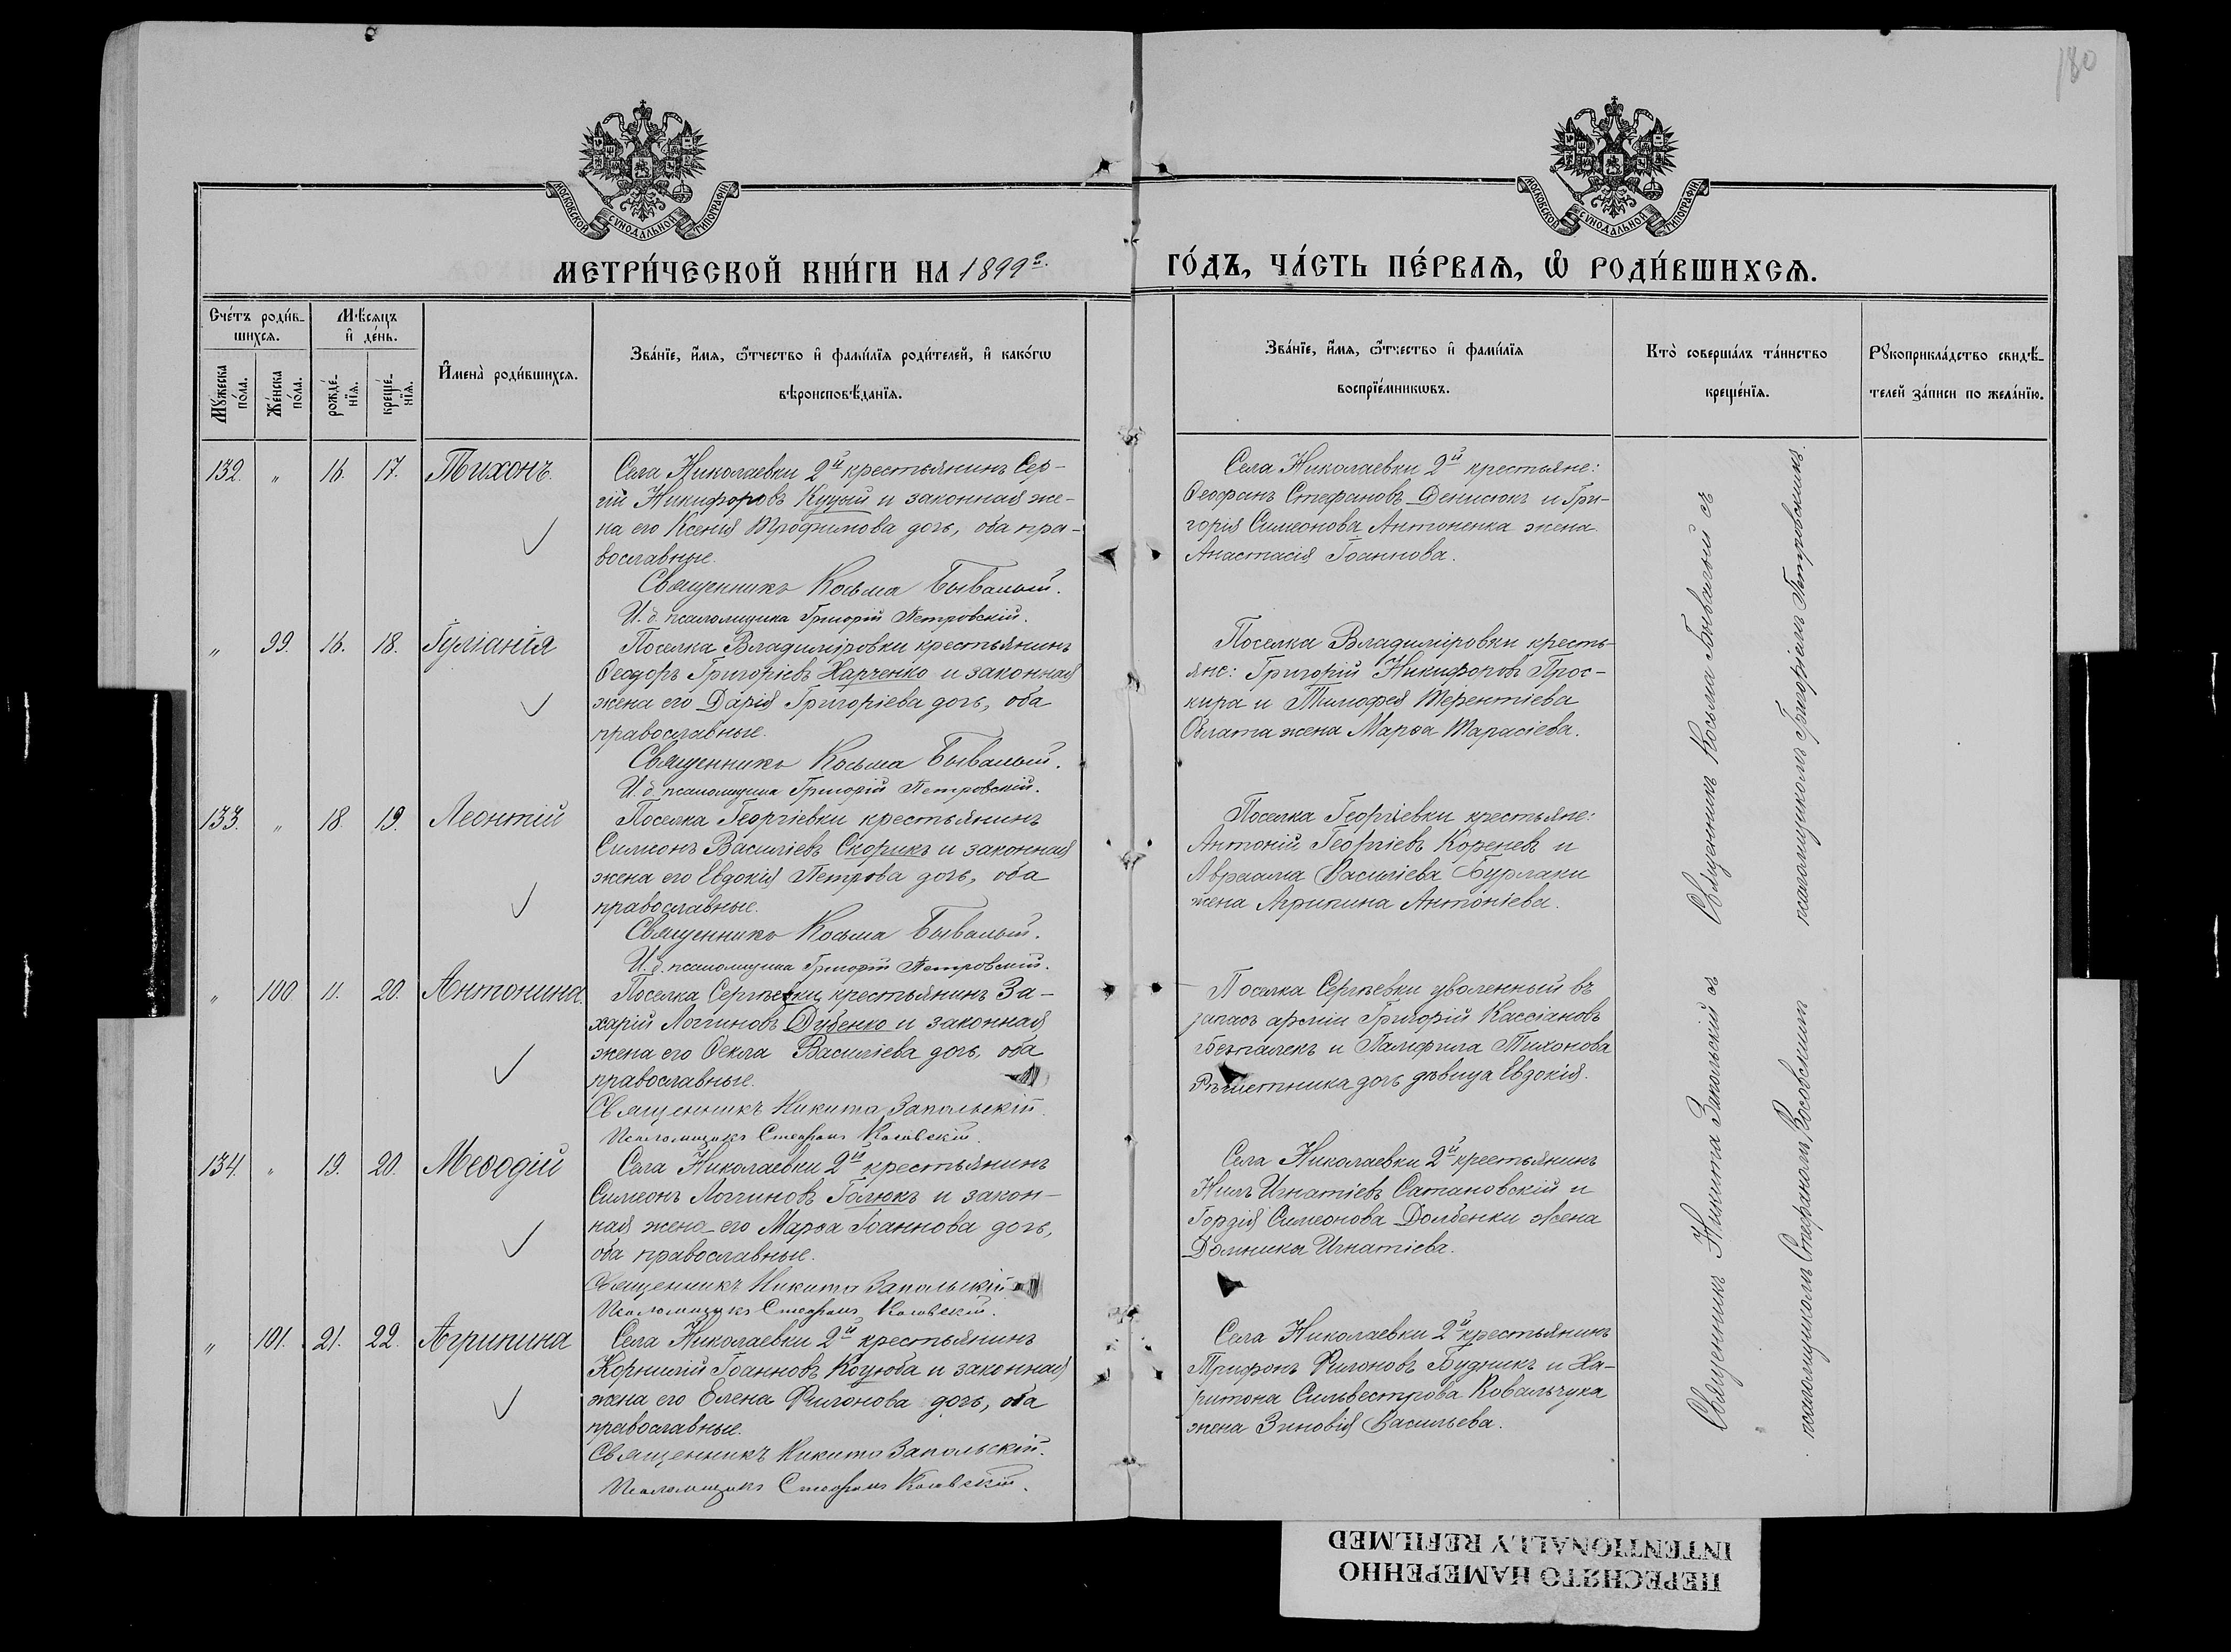 180
МОСКОВСКОЙ СУНОДАЛЬНОЙ ТИПОГРАФІИ
МОСКОВСКОЙ СУНОДАЛЬНОЙ ТИПОГРАФІИ
МЕТРИ́ЧЕСКОЙ КНИ́ГИ НА 1899 г.
ГО́ДЪ, ЧА́СТЬ ПЕ́РВАѦ, Ѡ҆ РОДИ́ВШИХСѦ.
Сче́тъ роди́в-
шихсѧ.
Мꙋ́жеска
по́ла.
Же́нска
по́ла.
Мѣ́сѧцъ
и҆ де́нь.
рожде́-
нїѧ.
креще́-
нїѧ.
И҆мена̀ роди́вшихсѧ.
Зва́нїе, и҆́мѧ, ѻ҆́тчество и҆ фами́лїѧ роди́телей, и҆ како́гѡ
вѣроисповѣ́данїѧ.
Зва́нїе, и҆́мѧ, ѻ҆́тчество и҆ фами́лїѧ
воспрїе́мникѡвъ.
Кто̀ соверша́лъ та́инство
креще́нїѧ.
Рꙋкоприкла́дство свидѣ́-
телей за́писи по жела́нїю.
132. " 16. 17. Тихонъ.
Села Николаевки 2й крестьянинъ Сер-
гій Никифоровъ Куцый и законная же-
на его Ксенія Трофимова дочь, оба пра-
вославные.
Священникъ Косьма Бывалый.
И. д. псаломщика Григорій Петровскій.
Села Николаевки 2й крестьяне:
Ѳеофанъ Стефановъ Денисюкъ и Гри-
горія Симеонова Антоненка жена
Анастасія Іоаннова.
" 99. 16. 18. Іуліанія
Поселка Владиміровки крестьянинъ
Ѳеодоръ Григоріевъ Харченко и законная
жена его Дарія Григоріева дочь, оба
православные.
Священникъ Косьма Бывалый.
И. д. псаломщика Григорій Петровскій.
Поселка Владиміровки кресть-
яне: Григорій Никифоровъ Прос-
кира и Тимофея Терентіева
жена Марѳа Тарасіева.
133. " 18. 19. Леонтій
Поселка Георгіевки крестьянинъ
Симеонъ Василіевъ Скорикъ и законная
жена его Евдокія Петрова дочь, оба
православные.
Священникъ Косьма Бывалый.
И. д. псаломщика Григорій Петровскій.
Поселка Георгіевки крестьяне:
Антоній Георгіевъ Коренев и
Авраама Василіева Бурлаки
жена Агрипина Антоніева.
Священникъ Косьма Бывалый съ
псаломщикомъ Григоріемъ Петровскимъ.
" 100 11. 20. Антонина
Поселка Сергѣевки крестьянинъ За-
харій Логгиновъ Дубенко и законная
жена его Ѳекла Василіева дочь, оба
православные.
Священникъ Никита Запольскій.
Псаломщикъ Стефанъ Косовскій.
Поселка Сергѣевки уволенный въ
запасъ арміи Григорій Кассіановъ
Безпалекъ и Памфила Тихонова
Рѣшетника дочь дѣвица Евдокія.
134. " 19. 20. Меѳодій
Села Николаевки 2й крестьянинъ
Симеонъ Логгиновъ Голюкъ и закон-
ная жена его Марѳа Іоаннова дочь,
оба православные.
Священникъ Никита Запольскій
Псаломщикъ Стефанъ Косовскій.
Села Николаевки 2й крестьянинъ
Нилъ Игнатіевъ Сатановскій и
Гордія Симеонова Долбенки жена
Домника Игнатіева.
" 101. 21. 22. Агрипина
Села Николаевки 2й крестьянинъ
Корнилій Іоанновъ Коцюба и законная
жена его Елена Филонова дочь, оба
православные.
Священникъ Никита Запольскій.
Псаломщикъ Стефанъ Косовскій.
Села Николаевки 2й крестьянинъ
Трифонъ Филоновъ Будникъ и Ха-
ритона Сильвестрова Ковальчука
жена Зиновія Васильева.
Священникъ Никита Запольскій съ
псаломщикомъ Стефаномъ Косовскимъ
ПЕРЕСНЯТО НАМЕРЕННО
INTENTIONALLY REFILMED